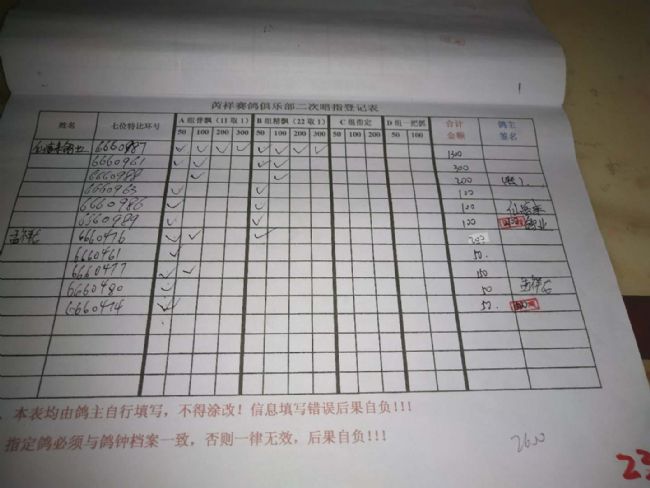 芮祥赛鸽俱乐部二次暗指登记表
姓名 七位特比环号 A组普飘(11取1) B组精飘(22取1) C组指定 D组一把抓 合计金额 鸽主签名
50 100 200 300 50 100 200 300 50 100 200 50 100
6660987 ✓ ✓ ✓ ✓ ✓ ✓ ✓ ✓ 1300
6660961 ✓ ✓ ✓ ✓ 300
6660988 ✓ ✓ 200
6660963 ✓ ✓
6660986 ✓ ✓ 100
6660989 ✓ ✓ 100
6660476 ✓ ✓ ✓
6660461 ✓ 50
6660477 ✓ ✓ 150
6660480 ✓ 50
6660474 ✓ 50
本表均由鸽主自行填写，不得涂改！信息填写错误后果自负!!!
指定鸽必须与鸽钟档案一致，否则一律无效，后果自负!!!
2600
23